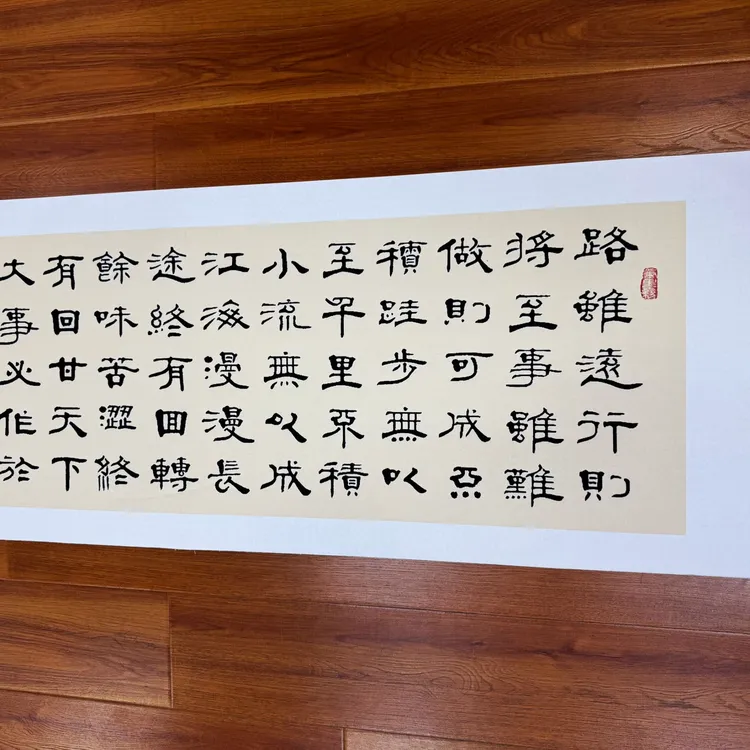 路雖遠行則
将至事雖難
做則可成不
積跬步無以
至千里不積
小流無以成
江海漫漫長
途終有回轉
餘味苦澀終
有回甘天下
大事必作於